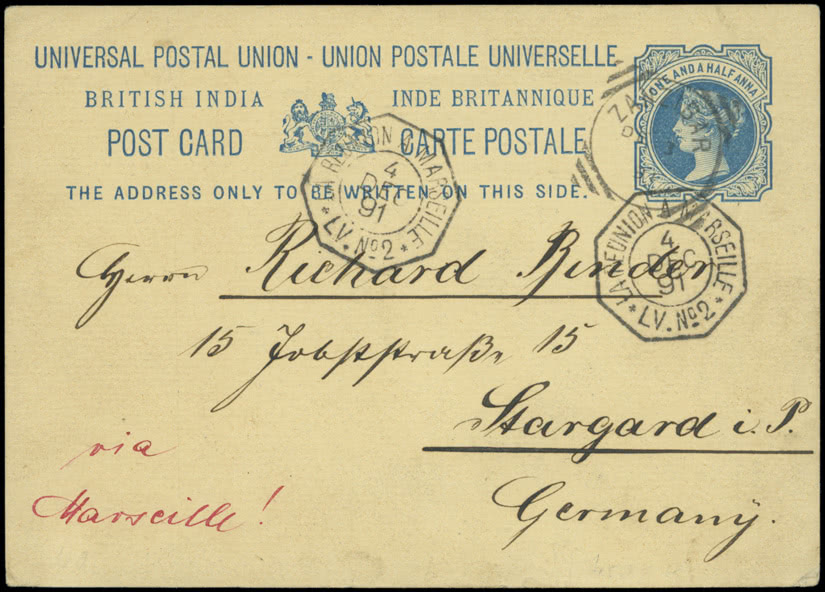 UNIVERSAL POSTAL UNION - UNION POSTALE UNIVERSELLE
ONE AND A HALF ANNA
BRITISH INDIA INDE BRITANNIQUE
POST CARD CARTE POSTALE
THE ADDRESS ONLY TO BE WRITTEN ON THIS SIDE.
ZANZIBAR
LA REUNION A MARSEILLE
4
DEC
91
* LV. No 2 *
LA REUNION A MARSEILLE
4
DEC
91
* LV. No 2 *
Herrn Richard Binder
15 Jobststraße 15
Stargard i. P.
via
Marseille!
Germany.